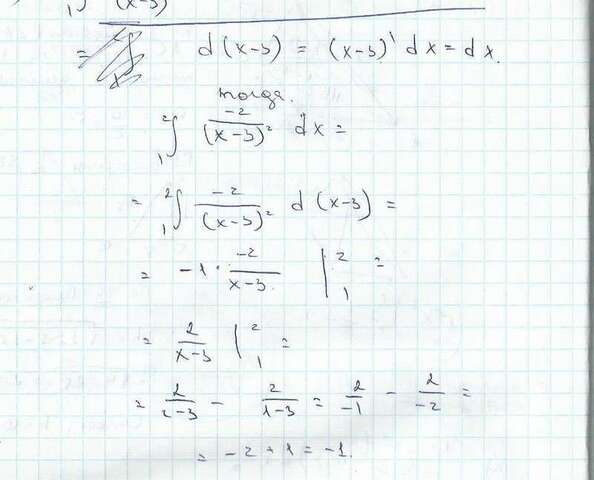 1∫ (x-3)
= d(x-3) = (x-3)' dx = dx.
тогда.
1∫2 -2/(x-3)² dx =
= 1∫2 -2/(x-3)² d(x-3) =
= -1 · -2/x-3 |2 1 =
= 2/x-3 |2 1 =
= 2/2-3 - 2/1-3 = 2/-1 - 2/-2 =
= -2+1 = -1.